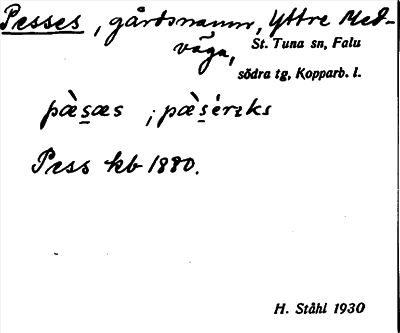 Pesses, gårdsnamn, Yttre Med-
väga, St. Tuna sn, Falu
södra tg, Kopparb. l.
pæ̀s̲æs ; pæ̀s̲érɛks
Pess kb 1880.
H. Ståhl 1930